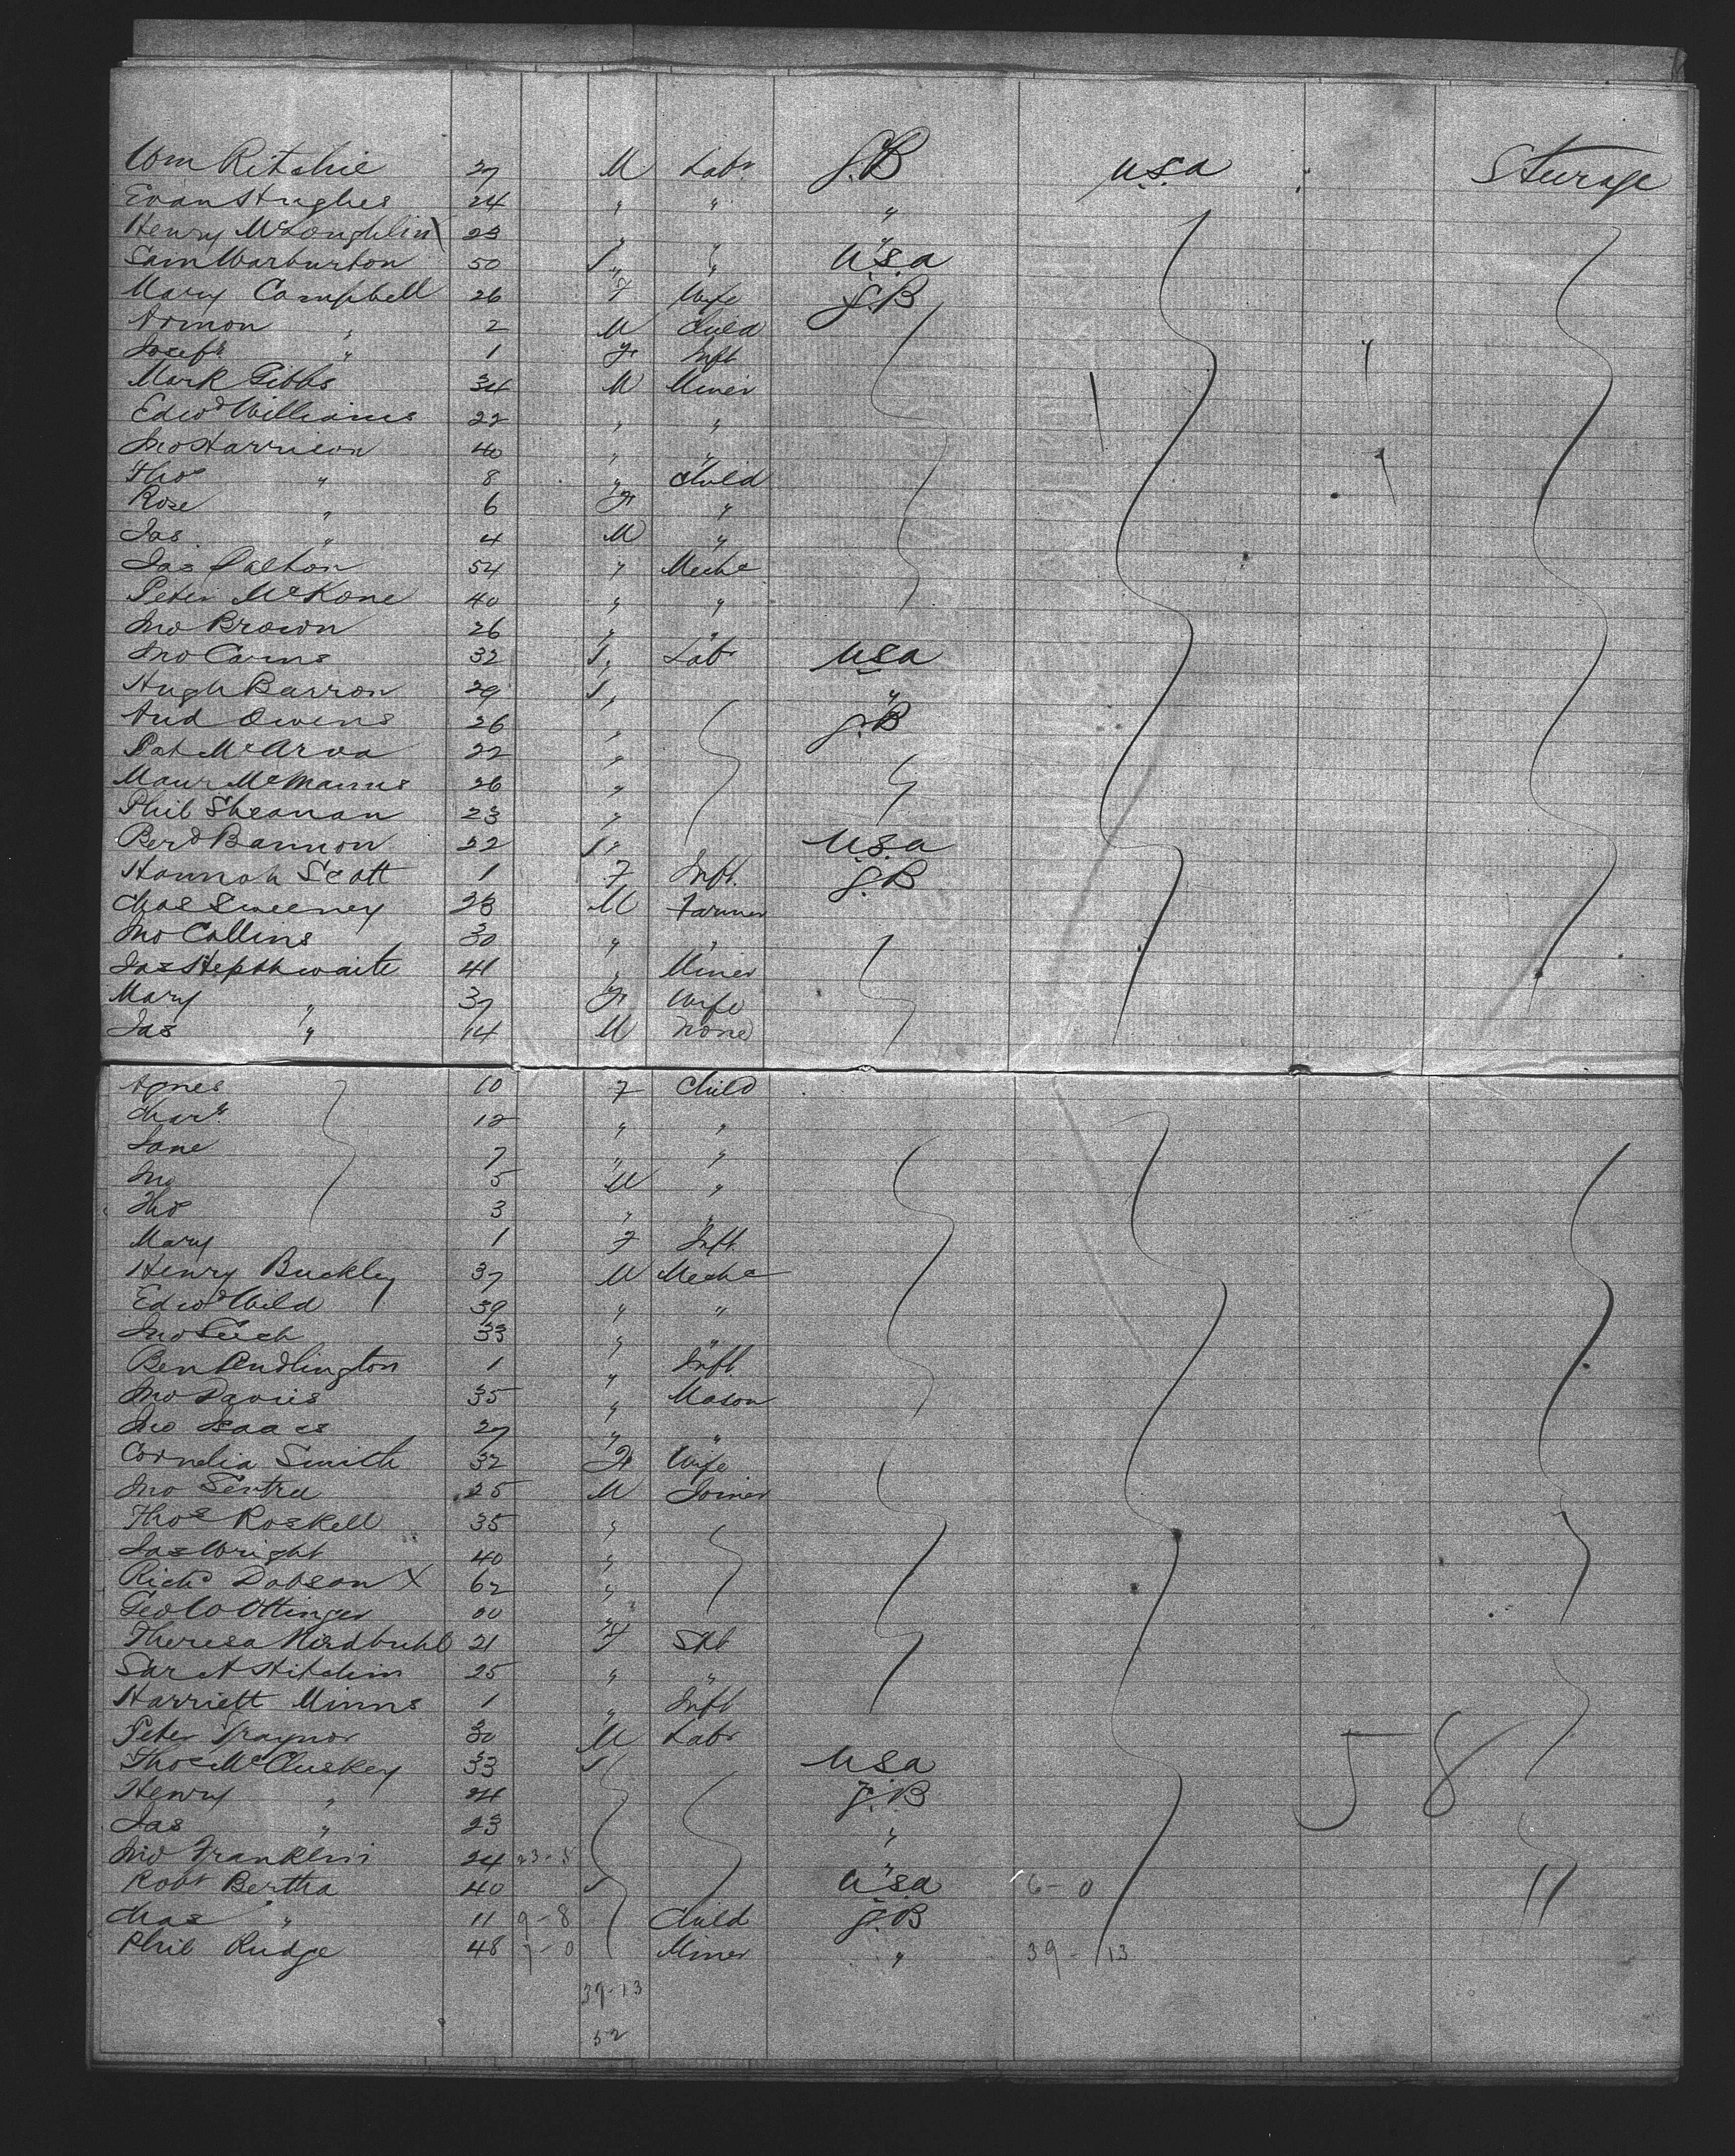 Wm Ritchie 27 M Labr G.B U.S.A Steerage
Evan Hughes 24 " " "
Henry McLoughlin X 23 " " "
Sam Warburton 50 " " U.S.A
Mary Campbell 26 F Wife G.B
" 2 M Child
Joseph " 1 F Inft
Mark Gibbs 34 M Miner
Edwd Williams 22 " "
Jno Harrison 40 " "
Thos " 8 " Child
Rose " 6 F "
Jas " 4 M "
Jas Dalton 54 " Mechc
Peter McKone 40 " "
Jno Brown 26 " "
Jno Carns 32 " Labr U.S.A
Hugh Barron 29 " "
And Owens 26 " G.B
Pat McArva 22 "
Maur McManus 26 "
Phil Sheanan 23 "
Berd Bannon 22 " U.S.A
Hannah Scott 1 F Inft. G.B
Chas Sweeney 23 M Farmer
Jno Collins 30 " "
Jas Hepthwaite 41 " Miner
Mary " 37 F Wife
Jas " 14 M None
Agnes 10 F Child
Char. 12 " "
Jane 7 " "
Jno 5 M "
Thos 3 " "
Mary 1 F Inft.
Henry Buckley 37 M Mechc
Edwd Wild 39 " "
Jno 33 " "
Ben 1 " Inft.
Jno Davies 35 " Mason
Jno Isaacs 27 " "
Cornelia Smith 32 F Wife
Jno 25 M Joiner
Thos Roskell 35 "
Jas Wright 40 "
Richd Dobson X 62 "
Geo W Ottinger "
Theresa 21 F
Sar A Hitchin 25 " "
Harriett Minns 1 " Inft
Peter Traynor 30 M Labr
Thos McCluskey 33 U.S.A
Henry " 24 G.B 58
Jas " 23 "
Jno Franklin 24 23-5 "
Robt Bertha 40 U.S.A 6-0
Chas " 11 9-8 Child G.B
Phil Rudge 48 7-0 Miner " 39-13
39-13
52